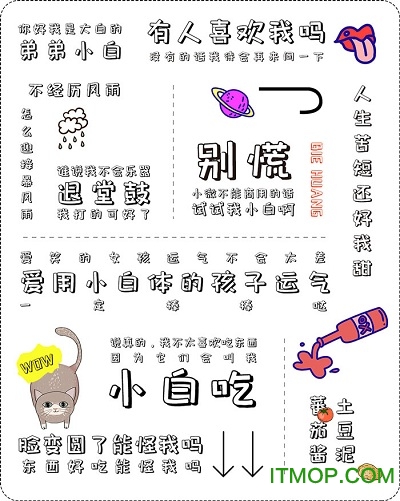 你好我是大白的
弟弟小白
有人喜欢我吗
没有的话我待会再来问一下
不经历风雨
怎么迎接暴风雨
谁说我不会乐器
退堂鼓
我打的可好了
别慌
BIE HUANG
小微不能商用的话
试试我小白啊
人生苦短还好我甜
爱笑的女孩运气不会太差
爱用小白体的孩子运气
一定棒棒哒
WOW
说真的，我不太喜欢吃东西
因为它们会叫我
小白吃
脸变圆了能怪我吗
东西好吃能怪我吗
OX
蕃土
茄豆
酱泥
ITMOP.com